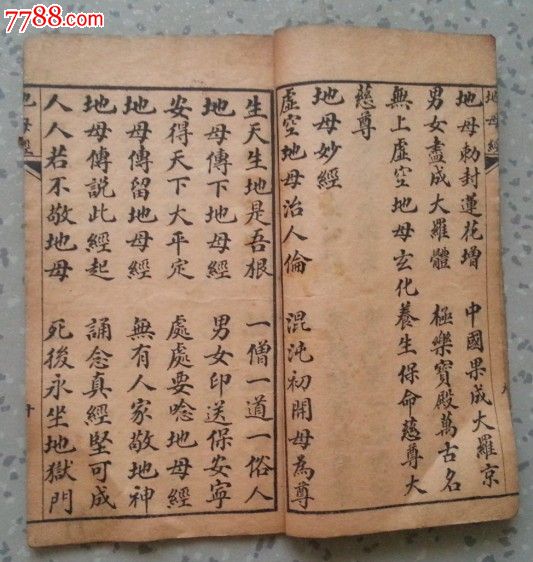 7788.com
地母經
地母勅封蓮花增　中國果成大羅京
男女盡成大羅體　極樂寶殿萬古名
無上虛空地母玄化養生保命慈尊大
慈尊
地母妙經
虛空地母治人倫　混沌初開母為尊
生天生地是吾根　一僧一道一俗人
地母傳下地母經　男女印送保安寧
安得天下大平定　處處要唸地母經
地母傳留地母經　無有人家敬地神
地母傳說此經起　誦念真經堅可成
人人若不敬地母　死後永坐地獄門
地母經
十